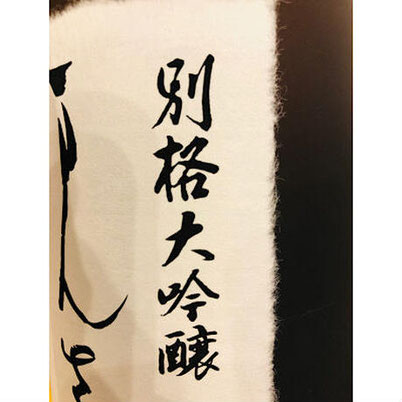 別格大吟醸